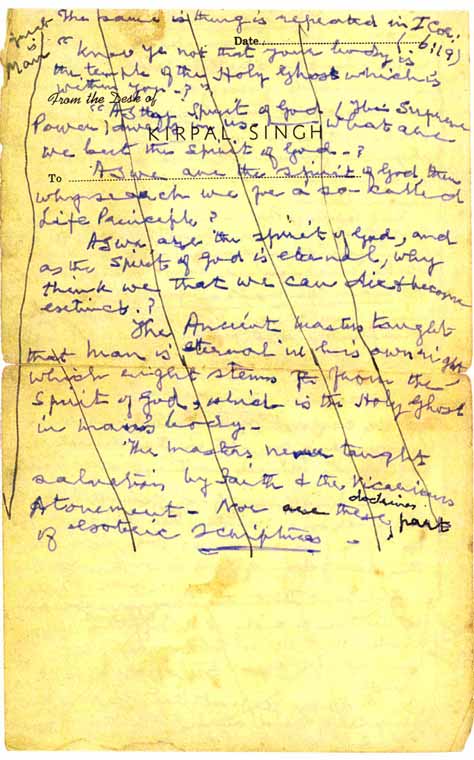 The same is thing is repeated in I Cor:
just is Man
Date
(6:19)
"know ye not that your body is
the temple of the Holy Ghost which is
within you -?"
From the Desk of
"As the Spirit of God (The Supreme
Power) dwells in us what are
KIRPAL SINGH
we but the Spirit of God -?
To
As we are the spirit of God then
why search we for a so-called
Life Principle?
As we are the spirit of God, and
as the Spirit of God is eternal, why
think we that we can die & become
extinct -?
The Ancient masters taught
that man is eternal in his own right
which right stems from the
Spirit of God, which is the Holy Ghost
in mans body -
The masters never taught
salvation by faith & the Vicarious
doctrines
Atonement - Nor are these part
of esoteric scriptures -